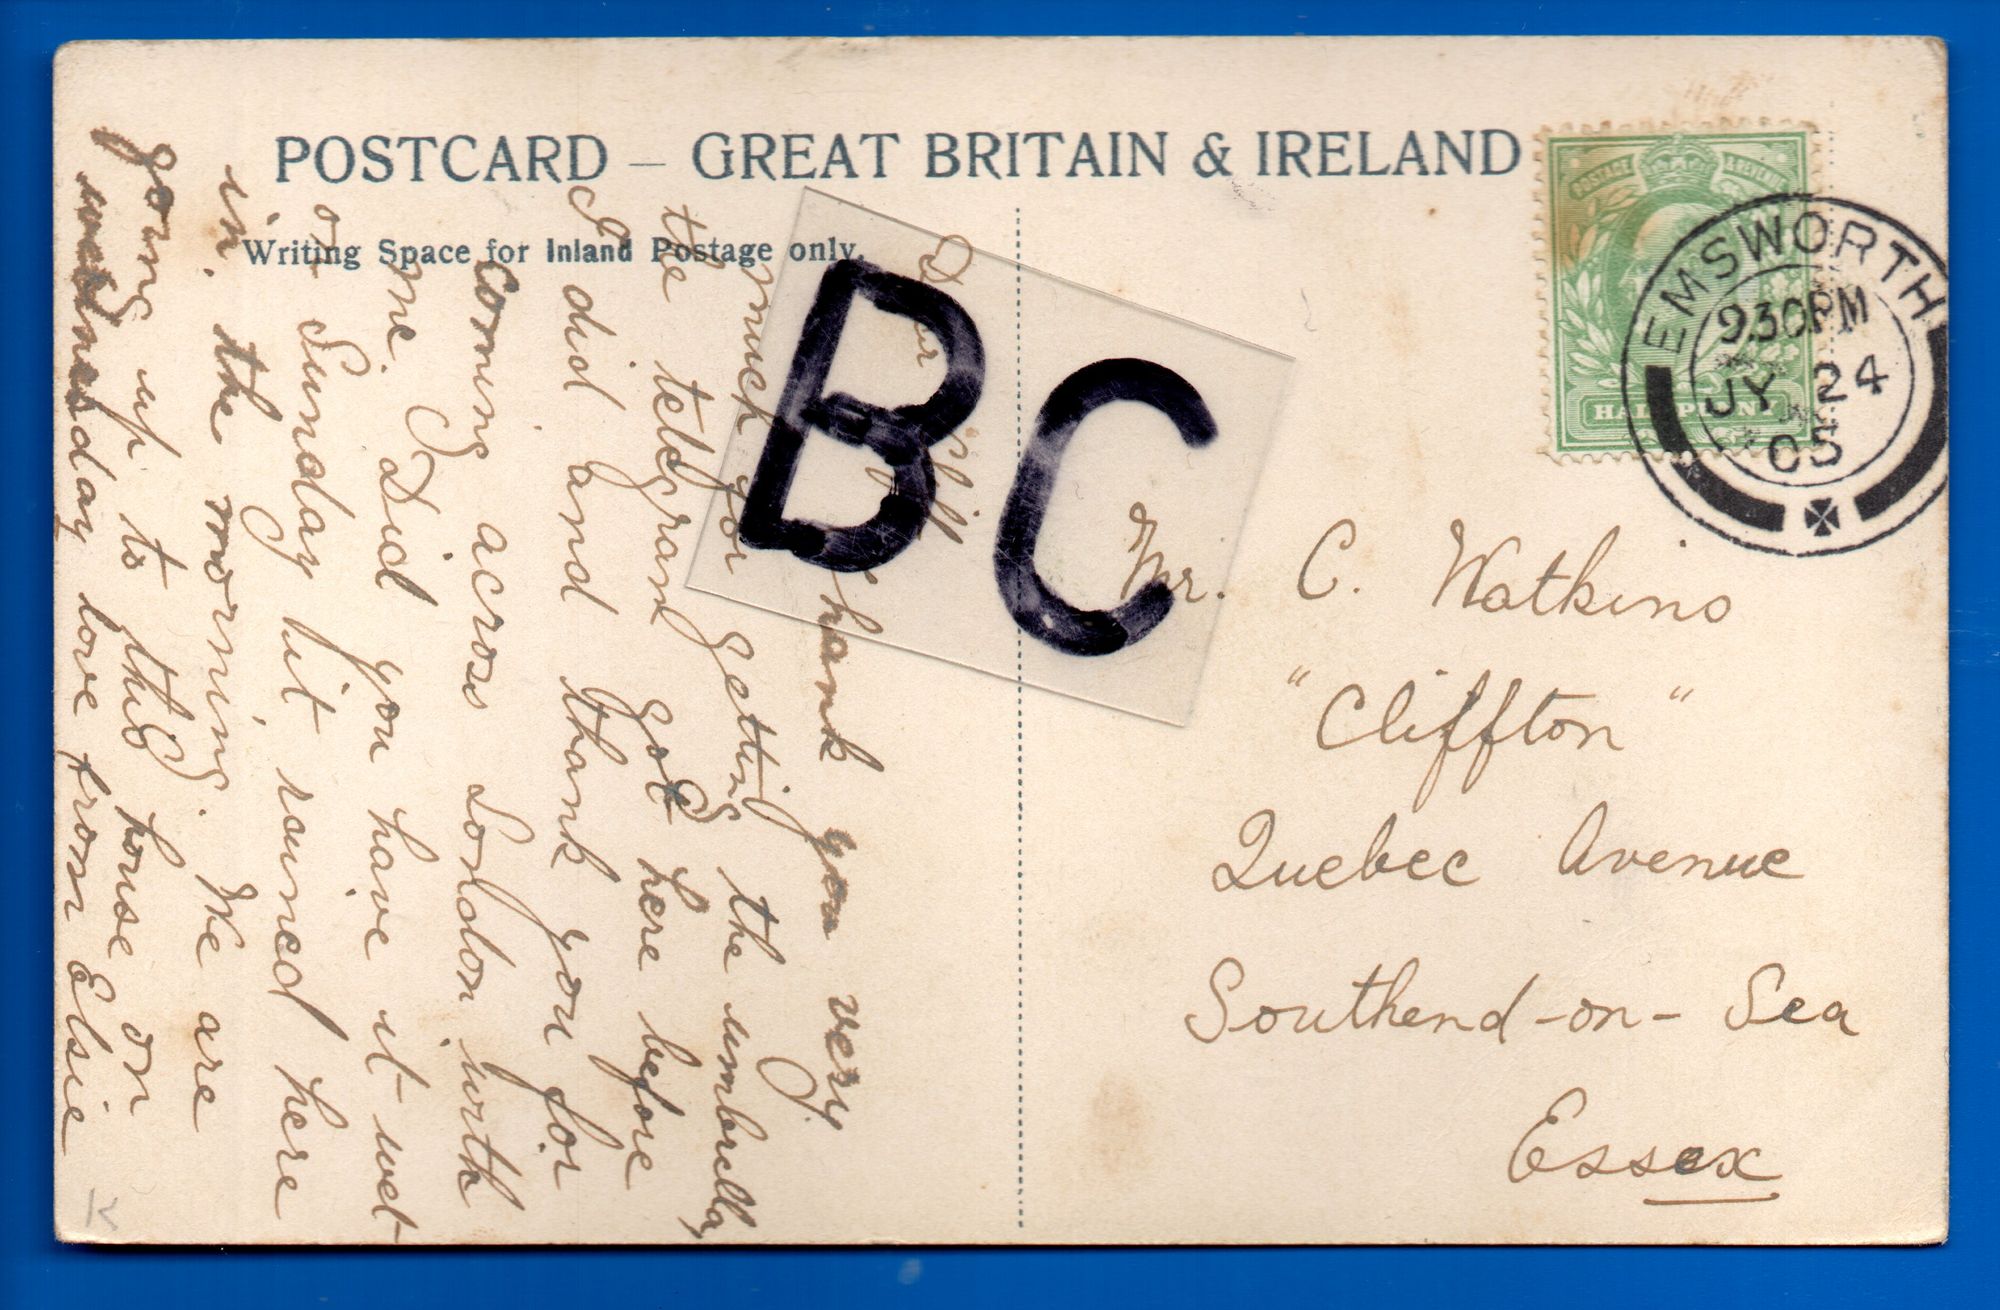 POSTCARD – GREAT BRITAIN & IRELAND
Writing Space for Inland Postage only.
Dear
thank you very
much for getting the umbrella,
the telegram got here before
I did and thank you for
coming across London with
me. Did you have it wet
on Sunday it rained here
in the morning. We are
going up to this house on
wednesday love from Elsie
BC
POSTAGE & REVENUE
HALFPENNY
EMSWORTH
9.30PM
JY 24
05
Mr. C. Watkins
"Cliffton"
Quebec Avenue
Southend-on-Sea
Essex
K